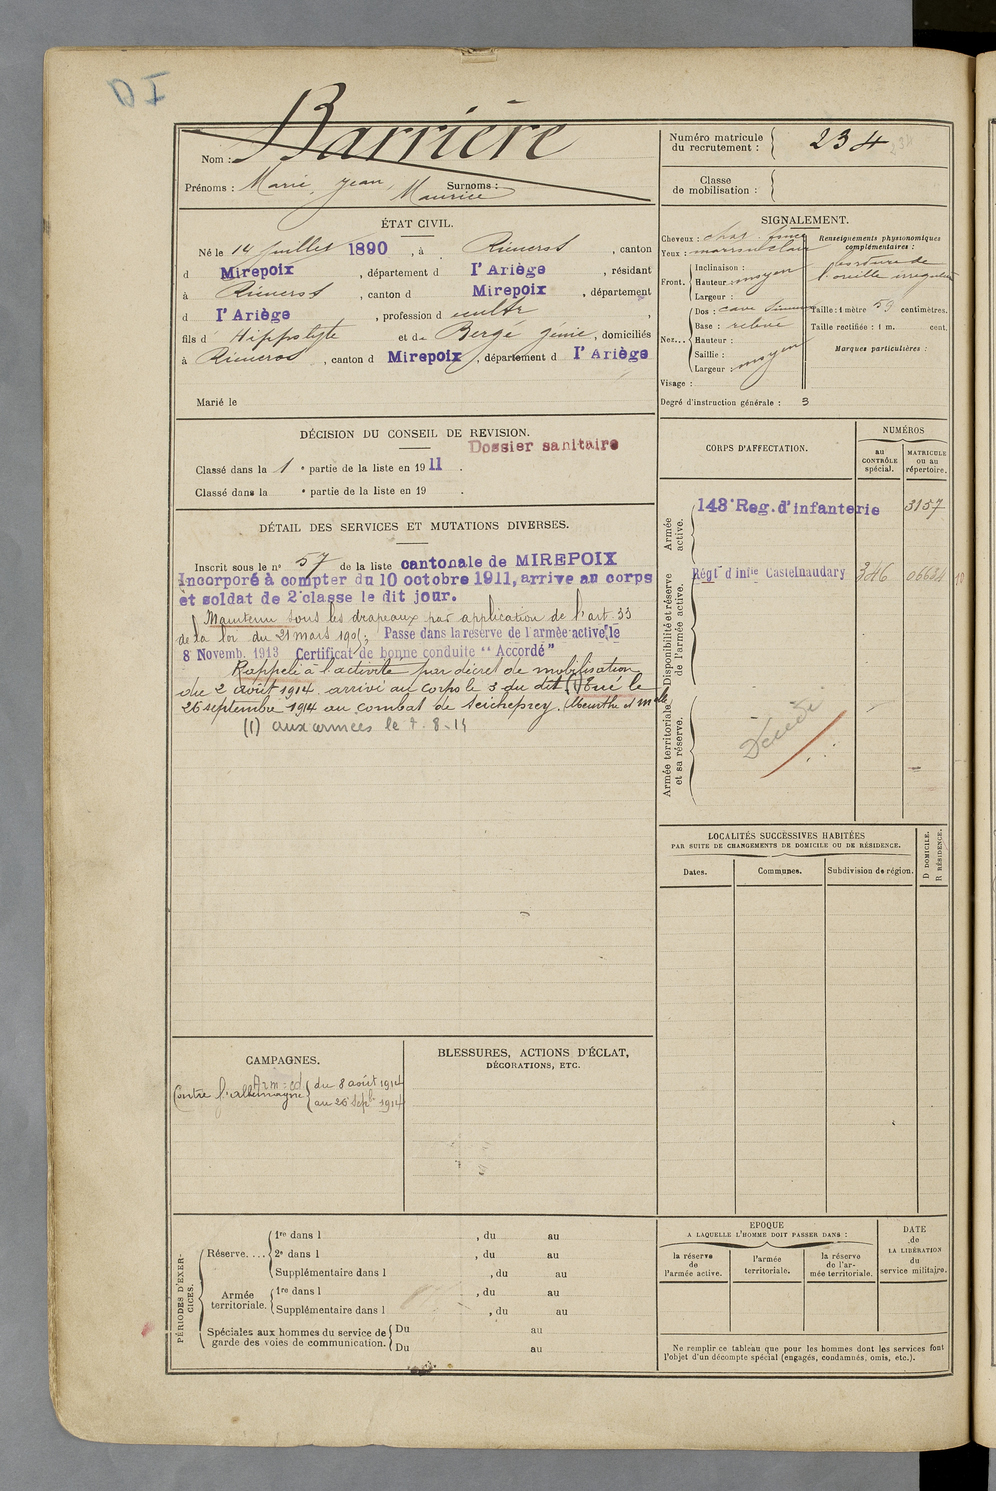 DI
Nom : Barrière
Prénoms : Marie, Jean, Maurice Surnoms :
Numéro matricule du recrutement : 234 234
Classe de mobilisation :
ÉTAT CIVIL.
Né le 14 juillet 1890, à Rieucros, canton
d Mirepoix, département d l'Ariège, résidant
à Rieucros, canton d Mirepoix, département
d l'Ariège, profession d cultr,
fils d Hippolyte et de Bergé Génie, domiciliés
à Rieucros, canton d Mirepoix, département d l'Ariège
Marié le
SIGNALEMENT.
Cheveux : chat. foncé
Yeux : marron clair
Front. Inclinaison :
Hauteur : moyen
Largeur :
Nez... Dos : cave
Base : relevé
Hauteur :
Saillie :
Largeur : moyen
Visage :
Degré d'instruction générale : 3
Renseignements physionomiques complémentaires :
bordure de
l'oreille
Taille : 1 mètre 59 centimètres.
Taille rectifiée : 1 m. cent.
Marques particulières :
DÉCISION DU CONSEIL DE REVISION.
Dossier sanitaire
Classé dans la 1e partie de la liste en 1911.
Classé dans la e partie de la liste en 19 .
DÉTAIL DES SERVICES ET MUTATIONS DIVERSES.
Inscrit sous le no 57 de la liste cantonale de MIREPOIX
Incorporé à compter du 10 octobre 1911, arrive au corps
et soldat de 2e classe le dit jour.
Maintenu sous les drapeaux par application de l'art. 33
de la loi du 21 mars 1905; Passe dans la reserve de l'armée active le
8 Novemb. 1913 Certificat de bonne conduite "Accordé"
Rappelé à l'activité par décret de mobilisation
du 2 août 1914. arrivé au corps le 3 du dit (1) Tué le
26 septembre 1914 au combat de Seicheprey (Meurthe et Mlle
(1) aux armées le 7-8-14
CORPS D'AFFECTATION.
NUMÉROS
au CONTRÔLE spécial.
MATRICULE ou au répertoire.
Armée active.
143e Reg. d'infanterie 3157
Disponibilité et réserve de l'armée active.
Régt d'infie Castelnaudary 346 06624
Armée territoriale et sa réserve.
Décédé
LOCALITÉS SUCCESSIVES HABITÉES
PAR SUITE DE CHANGEMENTS DE DOMICILE OU DE RÉSIDENCE.
Dates. Communes. Subdivision de région.
D DOMICILE.
R RÉSIDENCE.
CAMPAGNES.
Contre l'allemagne Arm=ed du 8 août 1914
au 26 Sept. 1914
BLESSURES, ACTIONS D'ÉCLAT,
DÉCORATIONS, ETC.
PÉRIODES D'EXERCICES.
Réserve.... 1re dans l , du au
2e dans l , du au
Supplémentaire dans l , du au
Armée territoriale. 1re dans l , du au
Supplémentaire dans l , du au
Spéciales aux hommes du service de garde des voies de communication. Du au
Du au
EPOQUE
A LAQUELLE L'HOMME DOIT PASSER DANS :
la réserve de l'armée active.
l'armée territoriale.
la réserve de l'armée territoriale.
DATE de LA LIBÉRATION du service militaire.
Ne remplir ce tableau que pour les hommes dont les services font
l'objet d'un décompte spécial (engagés, condamnés, omis, etc.).